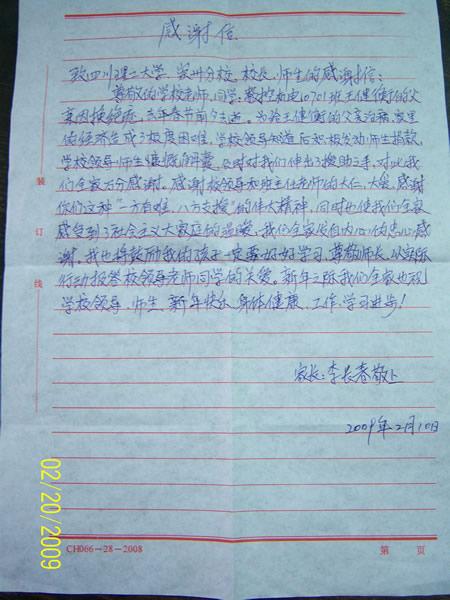 感谢信
致四川理工大学、
校长、师生的感谢信：
尊敬的学校老师、同学：
机电0701班王健衡的父
亲因
去年春节前夕去逝。为给王健衡的父亲治病，家里
的经济造成了极度困难，学校领导知道后积极发动师生捐款，
学校领导、师生慷慨解囊，及时对我们伸出了援助之手，对此我
们全家万分感谢。感谢校领导和班主任老师的大仁、大爱，感谢
你们这种“一方有难、八方支援”的伟大精神，同时也使我们全家
感受到了社会主义大家庭的温暖，我们全家发自内心的忠心感
谢，我也将鼓励我的孩子一定要好好学习，尊敬师长，以实际
行动报答校领导老师同学的关爱。新年之际我们全家也祝
学校领导、师生、新年快乐、身体健康、工作、学习进步！
家长：李长春敬上
2009年2月10日
装
订
线
CH066-28-2008
第 页
02/20/2009